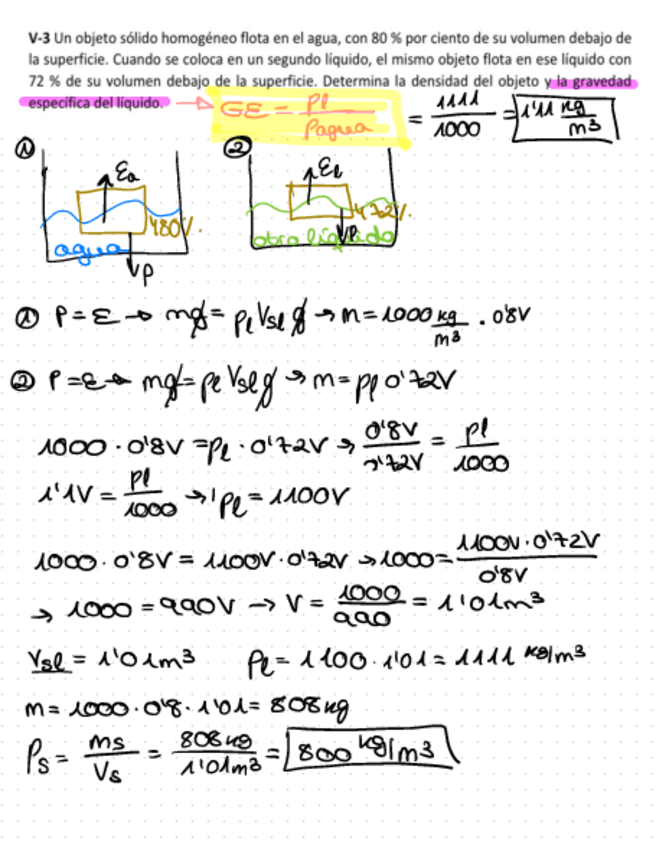 V-3 Un objeto sólido homogéneo flota en el agua, con 80 % por ciento de su volumen debajo de
la superficie. Cuando se coloca en un segundo líquido, el mismo objeto flota en ese líquido con
72 % de su volumen debajo de la superficie. Determina la densidad del objeto y la gravedad
específica del líquido. → GE = ρl / ρagua = 1111 / 1000 = 1'11 kg/m³
① Ea 80%. agua P
② El 72%. otro líquido P
① P = E → mg = ρl Vsl g → m = 1000 kg/m³ . 0'8V
② P = E → mg = ρl Vsl g → m = ρl 0'72V
1000 · 0'8V = ρl · 0'72V → 0'8V / 0'72V = ρl / 1000
1'1V = ρl / 1000 → ρl = 1100V
1000 · 0'8V = 1100V · 0'72V → 1000 = 1100V · 0'72V / 0'8V
→ 1000 = 990V → V = 1000 / 990 = 1'01m³
Vsl = 1'01m³ ρl = 1100 · 1'01 = 1111 kg/m³
m = 1000 · 0'8 · 1'01 = 808kg
ρs = ms / Vs = 808kg / 1'01m³ = 800 kg/m³